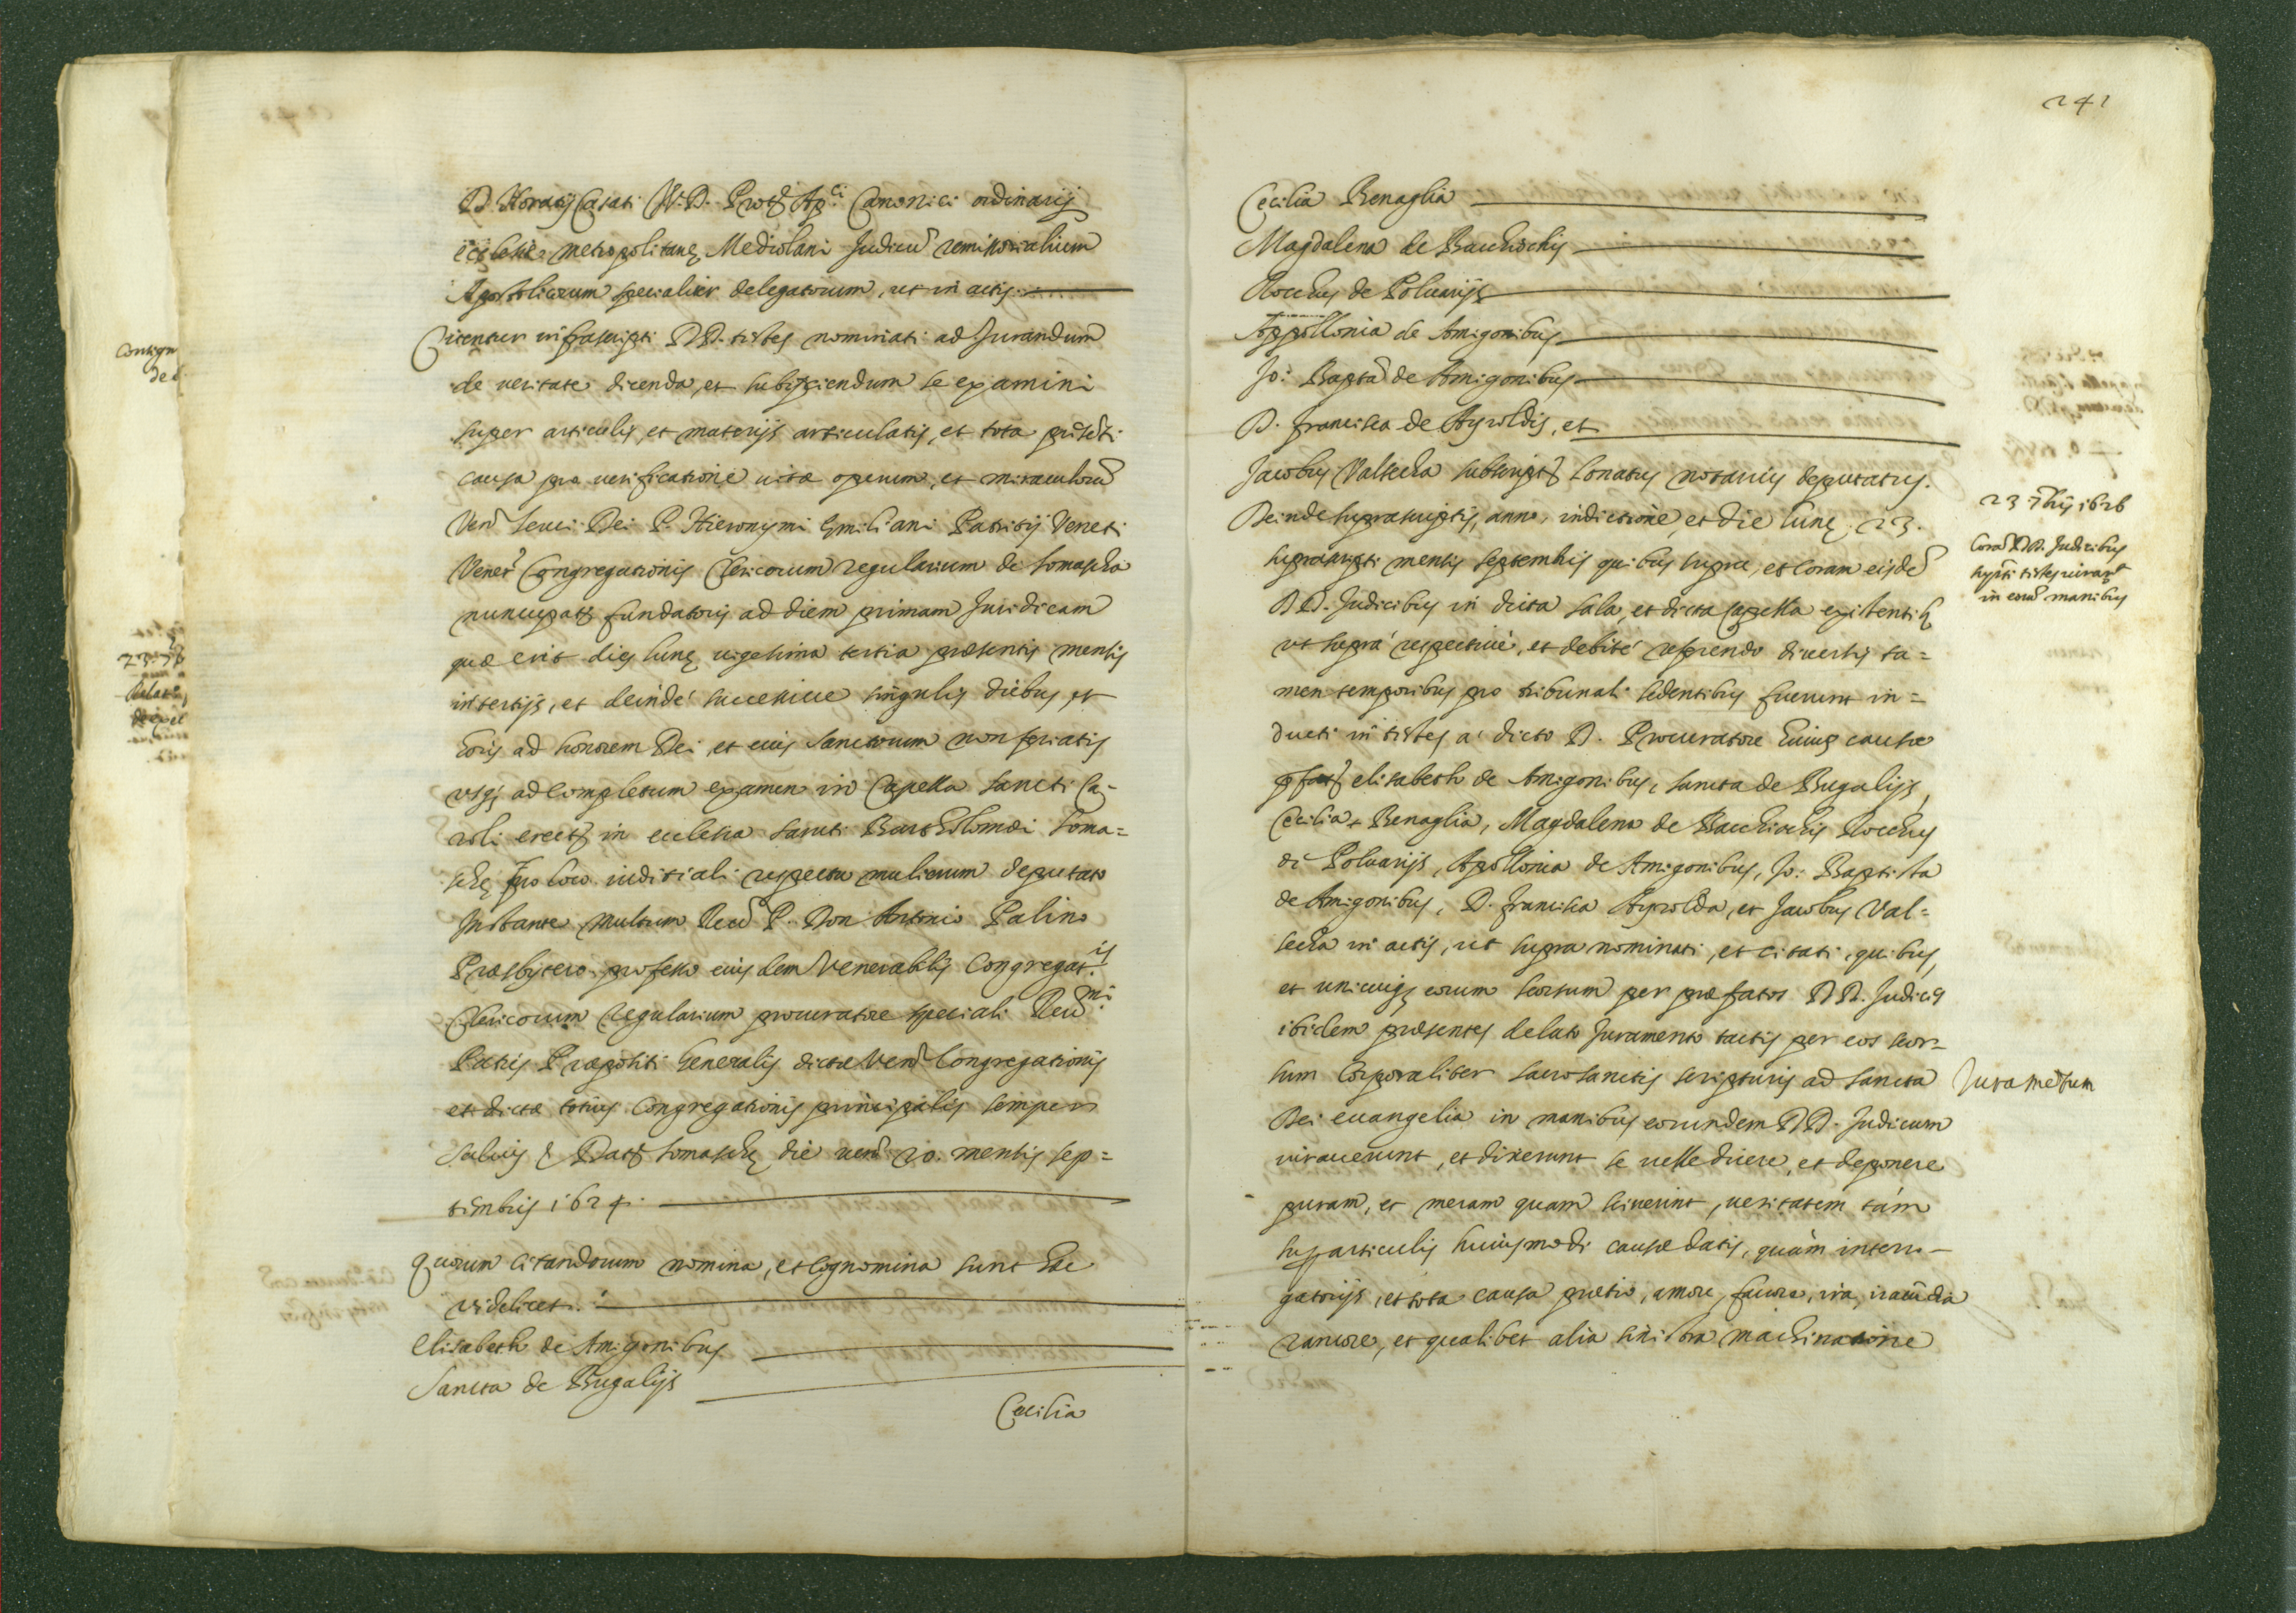 D. Horatij Casati J.V.D. Prot. Ap.ci Canonici ordinarij
ecclesiæ metropolitanę Mediolani Judicū remissorialium
Apostolicorum specialiter delegatorum, ut in actis.
Citentur infrascripti DD. testes nominati ad Jurandum
de veritate dicenda, et subijciendum se examini
super articulis, et materijs articulatis, et tota pñti
causa pro verificatione vitæ operum, et miraculorũ
Ven. Servi Dei P. Hieronymi Emiliani Patritij Veneti
Vener. Congregationis Clericorum regularium de Somascha
nuncupatę fundatoris ad diem primam Juridicam
quæ erit dies lunę vigesima tertia præsentis mensis
in tertijs, et deinde successive singulis diebus, et
horis ad honorem Dei, et eius Sanctorum non feriatis
usq; ad completum examen in Capella Sancti Ca-
roli erectę in ecclesia Sancti Bartholomæi Soma=
schę pro loco inditiali respectu mulierum deputato
Instante multum Reũ P. Don Antonio Palino
Præsbytero professo eiusdem Venerabilis Congregat.is
Clericorum Regularium procuratore speciali Reũ.mi
Patris Præpositi Generalis dictæ Ven. Congregationis
et dictæ totius Congregationis principalis semper
Salvis & Datę Somaschę die ven. 20. mensis sep=
tembris 1624.
Quorum citandorum nomina, et cognomina sunt hæc
videlicet.
Elisabeth de Amigonibus
Sancta de Bugalijs
Cecilia
241
Cecilia Benaglia
Magdalena de Bacchiochis
Rocchus de Poluarijs
Appollonia de Amigonibus
Jo: Bapta de Amigonibus
D. Francisca de Ayroldis, et
Jacobus Valsecha subscript. Sonatus notarius deputatus.
Deinde suprascriptis, anno, indictione, et die lunę 23.
suprascripti mensis septembris quibus supra, et coram eisdē
DD. Judicibus in dicta sala, et dicta Capella existentib.
ut supra respective, et debite referendo diversis ta=
men temporibus pro tribunali sedentibus fuerunt in=
ducti in testes a dicto D. Procuratore huius causæ
Elisabeth de Amigonibus, Sancta de Bugalijs,
Cecilia Benaglia, Magdalena de Bacchiochis Rocchus
de Poluarijs, Apollonia de Amigonibus, Jo: Baptista
de Amigonibus, D. Francisca Ayrolda, et Jacobus Val=
secha in actis, ut supra nominati, et citati, quibus,
et unicuiq; eorum seorsum per præfatos DD. Judices
ibidem præsentes delato Juramento tactis per eos seor-
sum corporaliter sacrosanctis scripturis ad sancta
Dei evangelia in manibus eorundem DD. Judicum
iuraverunt, et dixerunt se velle dicere, et deponere
puram, et meram quam sciverint, veritatem tam
sup. articulis huiusmodi causæ datis, quàm interro-
gatorijs, et tota causa pretio, amore, favore, ira, iracūdia
rancore, et qualibet alia sinistra machinatione
23 7bris 1626
Corã DD. Judicibus
testes iurant
in eorũ manibus
Juramētum